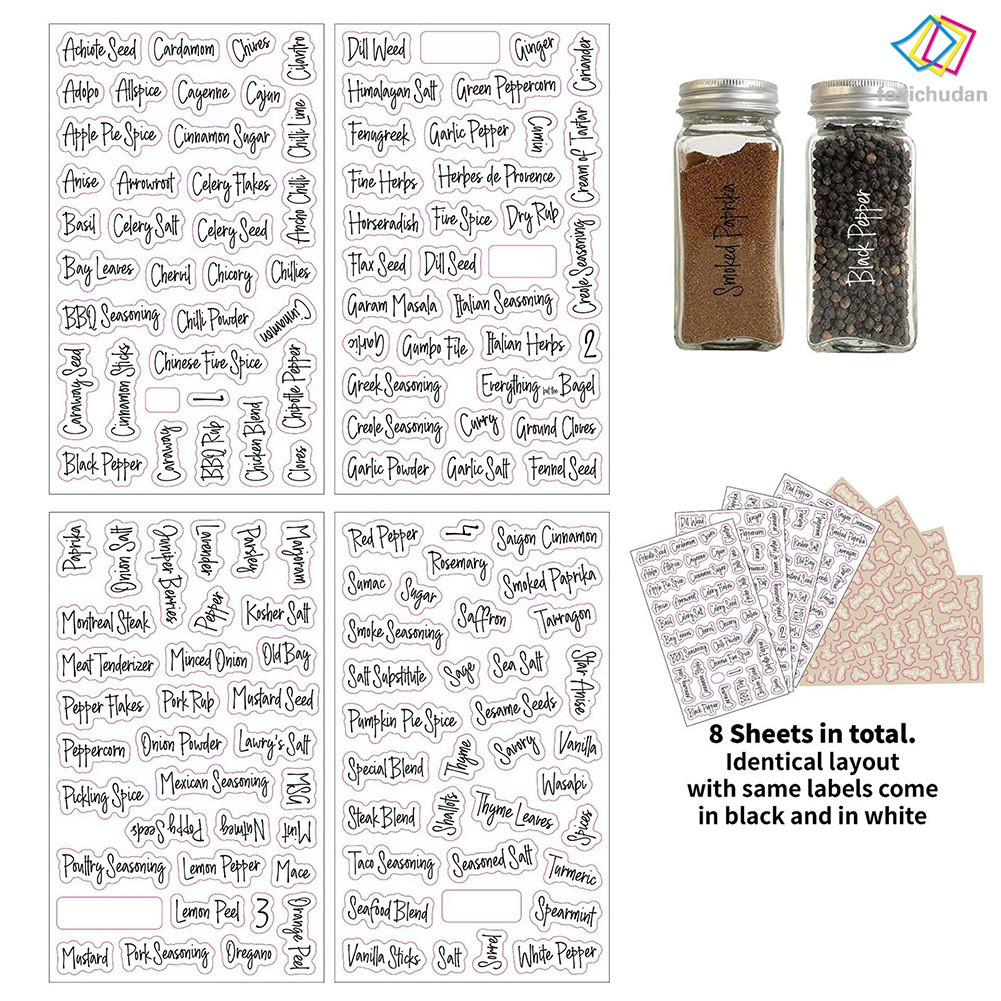 Achiote Seed Cardamom Chives Cilantro
Adobo Allspice Cayenne Cajun
Apple Pie Spice Cinnamon Sugar Chilli Lime
Anise Arrowroot Celery Flakes Ancho Chilli
Basil Celery Salt Celery Seed
Bay Leaves Chervil Chicory Chillies
BBQ Seasoning Chilli Powder Cinnamon
Caraway Seed Cinnamon Sticks Chinese Five Spice Chipotle Pepper
1
Black Pepper Caraway BBQ Rup Chicken Blend Cloves
Dill Weed Ginger Coriander
Himalayan Salt Green Peppercorn
Fenugreek Garlic Pepper Cumin Cream of Tartar
Fine Herbs Herbes de Provence
Horseradish Five Spice Dry Rub
Flax Seed Dill Seed Creole Seasoning
Garam Masala Italian Seasoning
Garlic Gumbo File Italian Herbs 2
Greek Seasoning Everything but the Bagel
Creole Seasoning Curry Ground Cloves
Garlic Powder Garlic Salt Fennel Seed
Paprika Onion Salt Juniper Berries Lavender Parsley Marjoram
Montreal Steak Pepper Kosher Salt
Meat Tenderizer Minced Onion Old Bay
Pepper Flakes Pork Rub Mustard Seed
Peppercorn Onion Powder Lawry's Salt
Pickling Spice Mexican Seasoning MSG
Poppy Seeds Nutmeg Mint
Poultry Seasoning Lemon Pepper Mace
Lemon Peel 3 Orange Peel
Mustard Pork Seasoning Oregano
Red Pepper 4 Saigon Cinnamon
Rosemary
Sumac Sugar Smoked Paprika
Smoke Seasoning Saffron Tarragon
Salt Substitute Sage Sea Salt Star Anise
Pumpkin Pie Spice Sesame Seeds
Special Blend Thyme Savory Vanilla
Wasabi
Steak Blend Shallots Thyme Leaves Spices
Taco Seasoning Seasoned Salt Turmeric
Seafood Blend Spearmint
Vanilla Sticks Salt Sorrel White Pepper
Smoked Paprika
Black Pepper
8 Sheets in total.
Identical layout
with same labels come
in black and in white